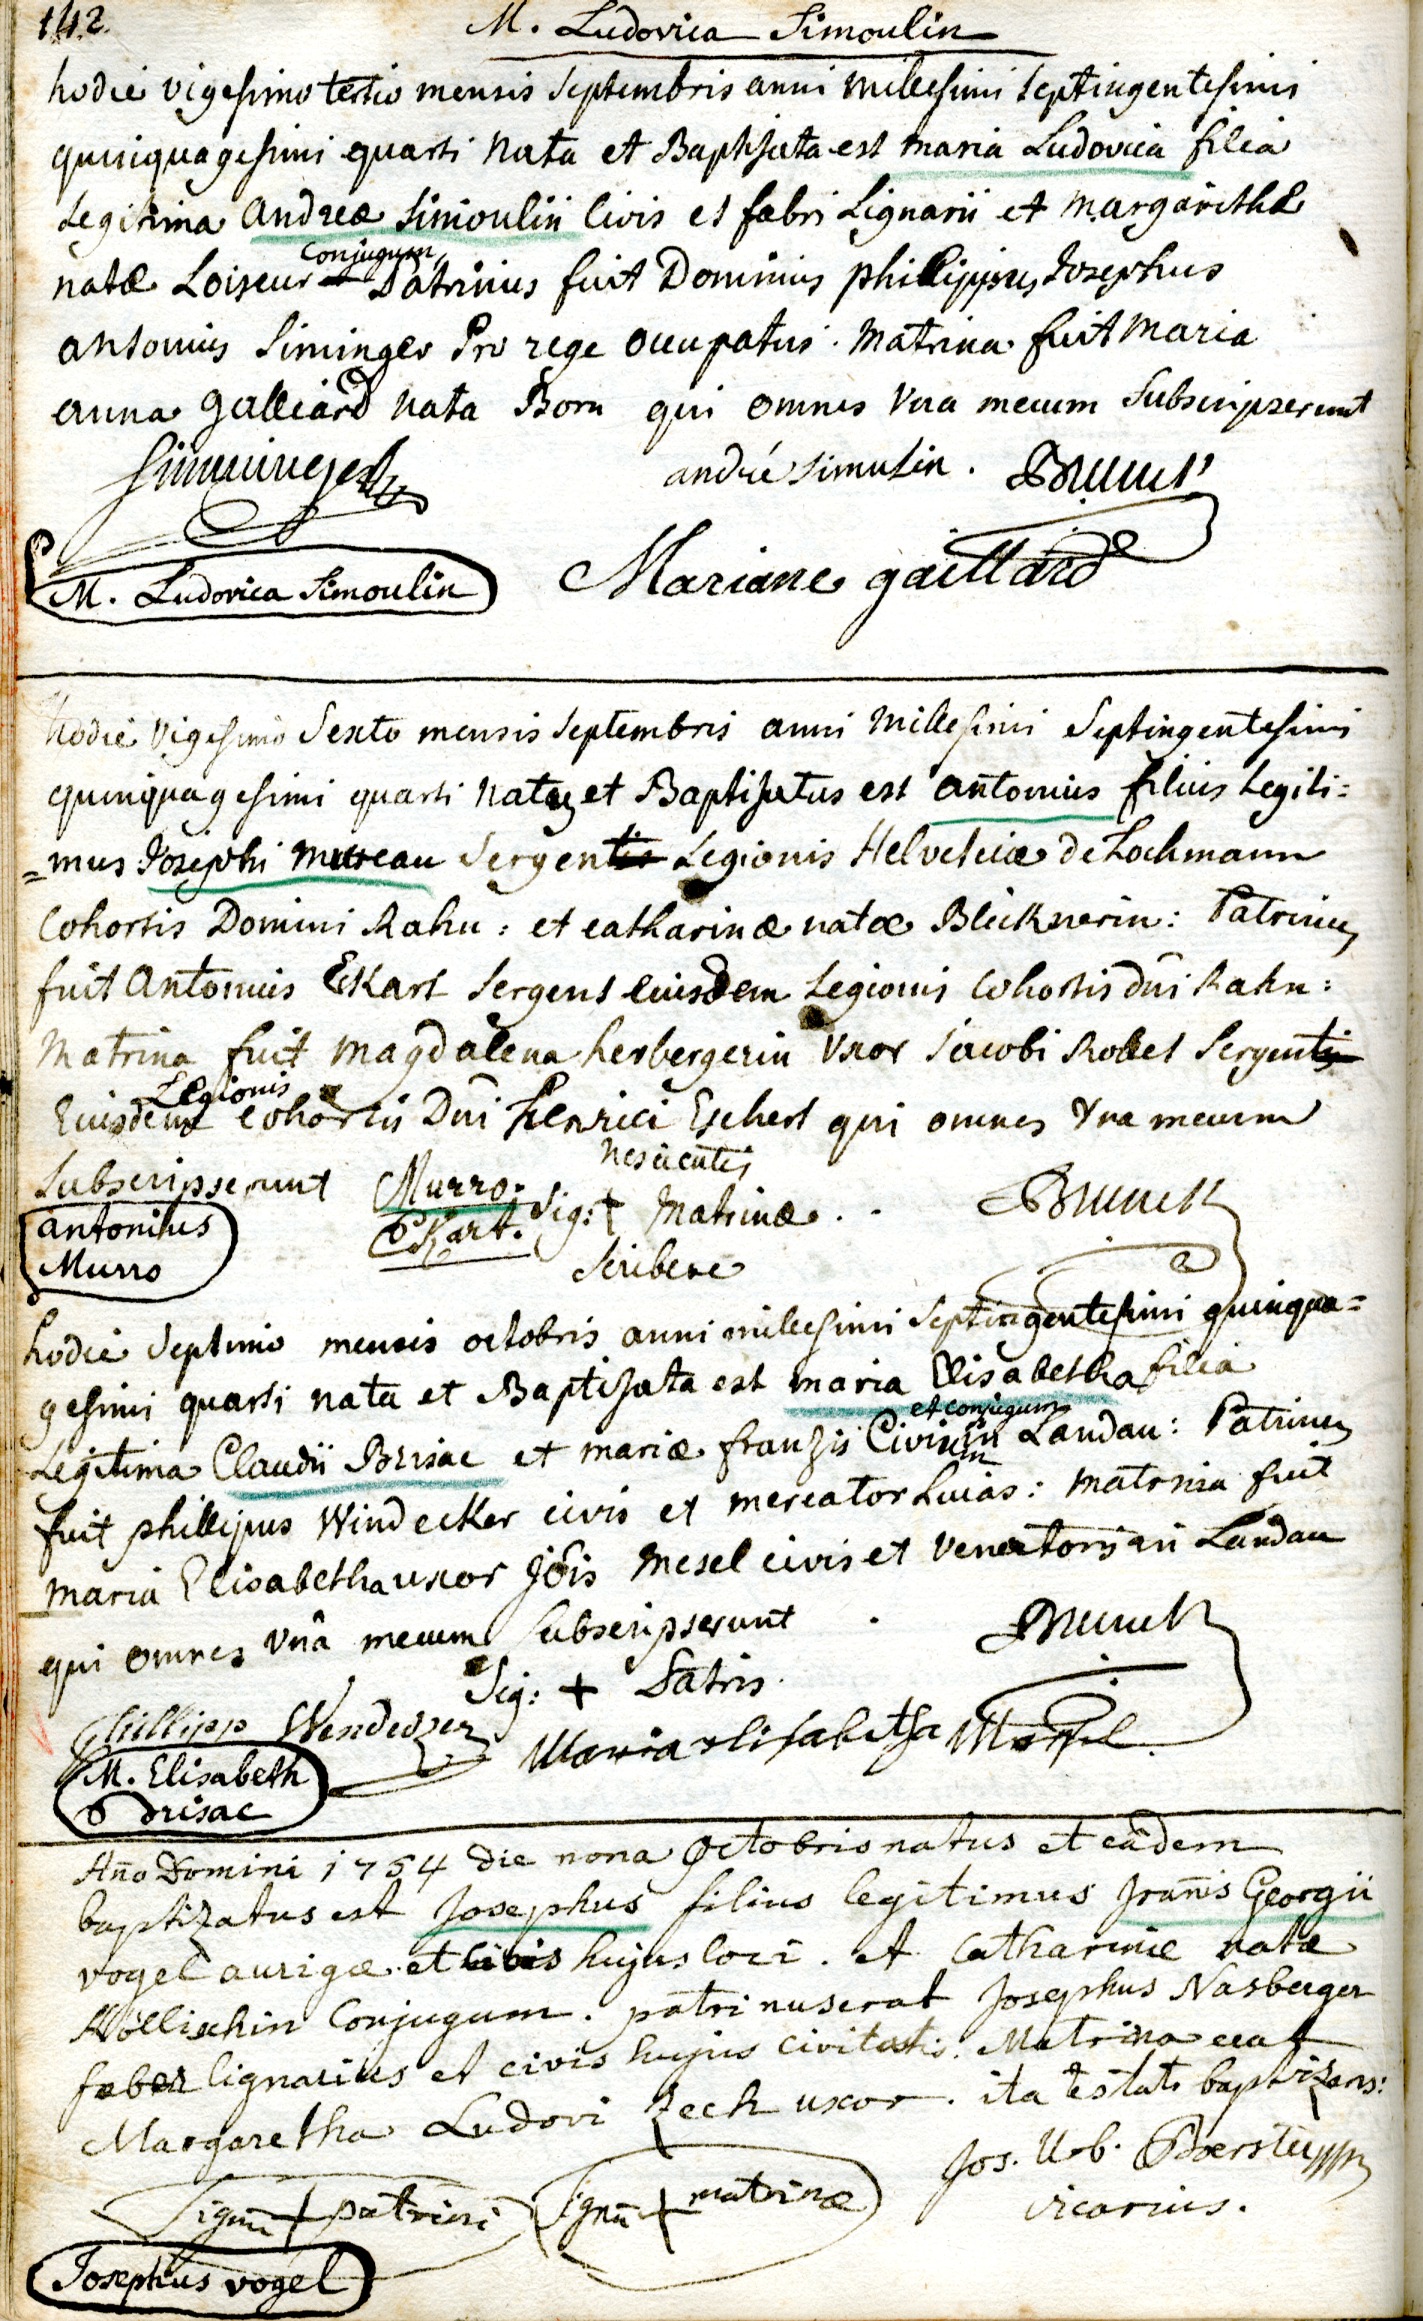 142.
M. Ludovica Simoulin
hodie vigesimo tertio mensis Septembris anni millesimi septingentesimi
quinquagesimi quarti nata et Baptisata est maria Ludovica filia
Legitima andreæ Simoulin Civis et fabri Lignarii et margarithæ
conjugum
natæ Loiseur Patrinus fuit Dominus philippus Josephus
antonius Siminger Pro rege occupatus. matrina fuit maria
anna galliard nata Born qui omnes una mecum Subscripserunt
Simminger
andré simulin. Brunck
Mariane gaillard
M. Ludovica Simoulin
hodie vigesimo Sexto mensis Septembris anni millesimi Septingentesimi
quinquagesimi quarti natus et Baptisatus est antonius filius Legiti=
=mus Josephi mureau Sergentis Legionis Helveticæ de Lochmann
Cohortis Domini Rahn: et catharinæ natæ Blicknerin: Patrinus
fuit Antonius Ekart Sergens eiusdem Legionis Cohortis dni Rahn:
Matrina fuit magdalena herbergerin Uxor Jacobi Rollet Sergentis
Legionis
Eiusdem cohortis Dni Henrici Eschert qui omnes Una mecum
Subscripserunt Murro. nescientis
Ekart. Sig: + Matrinæ . . Brunck
Scribere
antonius
Murro
hodie Septimo mensis octobris anni millesimi Septingentesimi quinqua=
gesimi quarti nata et Baptisata est maria Elisabetha filia
et conjugum
Legitima Claudii Brisac et mariæ franzis Civium in Landau: Patrinus
fuit phillipus Windecker civis et mercator huias: matrina fuit
maria Elisabetha uxor Jois Mesel civis et Venatoris in Landau
qui omnes Unâ mecum Subscripserunt . Brunck
Sig: + Patris.
Phillipp Wendecker
Maria elisabetha Mesel
M. Elisabeth
Brisac
Año Domini 1754 die nona Octobris natus et eâdem
baptizatus est Josephus filius legitimus Joannis Georgii
vogel aurigæ et civis hujus loci. et Catharinæ natæ
Köllischin Conjugum. patrinus erat Josephus Nasberger
faber lignarius et civis hujus civitatis. Matrina erat
Margaretha Ludovi Zech uxor. ita testatr baptizans:
Jos. Urb.
vicarius.
Signũ + patrini Signũ + matrinæ
Josephus vogel